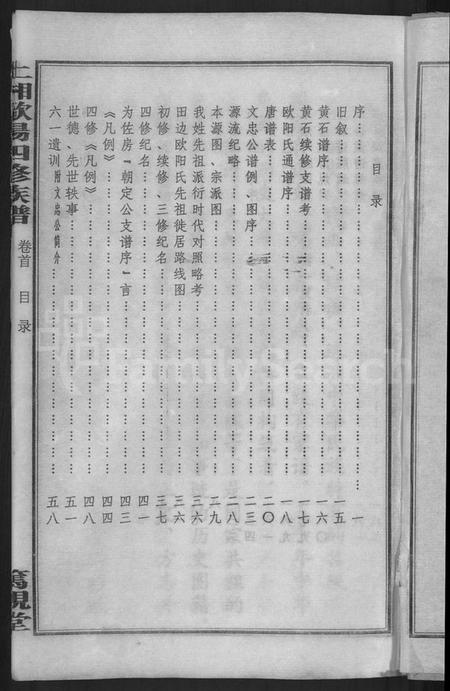 目录
序 一
旧叙 一五
黄石谱序 一六
黄石续修支谱考 一七
欧阳氏通谱序 一八
唐谱表 二〇
文忠公谱例、图序 二三
源流纪略 二八
本源图、宗派图 二九
我姓先祖派衍时代对照略考 三六
田边欧阳氏先祖徙居路线图 三六
初修、续修、三修纪名 三七
四修纪名 四一
为佐房“朝定公支谱序”一言 四三
《凡例》 四四
四修《凡例》 四八
世德、先世轶事 五一
六一遗训 附文忠公简介 五八
上湘欧阳四修族谱
卷首 目录
笃亲堂
FamilySearch